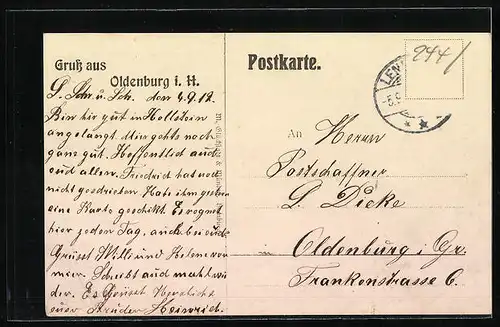 Gruß aus
Oldenburg i. H.
L. Schw. u. Sch. den 4.9.12.
Bin hir gut in Hollstein
angelangt. Mir gehts noch
ganz gut. Hoffentlich auch
euch allen. Friedrich hat noch
nicht geschrieben Habe ihm gestern
eine Karte geschikt. Es regnet
hir jeden Tag, auch bei euch.
Grüsset Willi und Helene von
mir. Schreibt auch mahl wie
der. Es Grüsset Herzlichst
euer Bruder Heinrich.
Postkarte.
LEN
244/
An Herrn
Postschaffner
L Dicke
Oldenburg i. Gr.
Frankenstrasse 6.